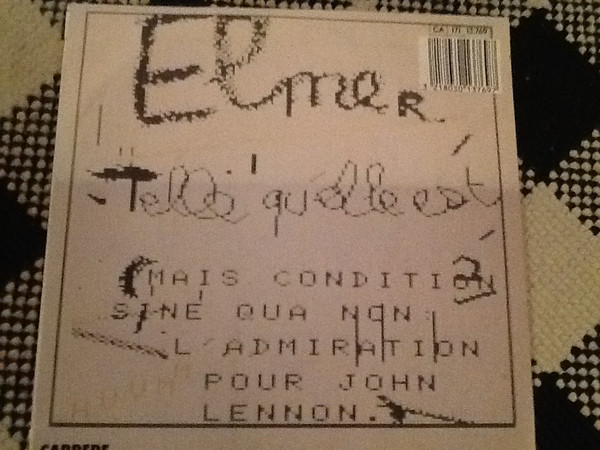 CA 171 13.769
3 218030 137697
ElmeR
Telle qu'elle est
(MAIS CONDITION
SINE QUA NON:
L'ADMIRATION
POUR JOHN
LENNON.
CARRERE